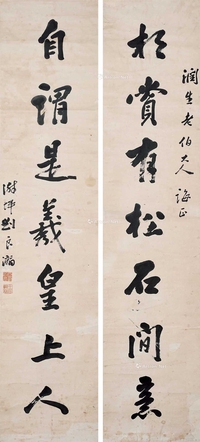 润生老伯大人 诲正
相賞有松石間意
自謂是羲皇上人
劉良瀚